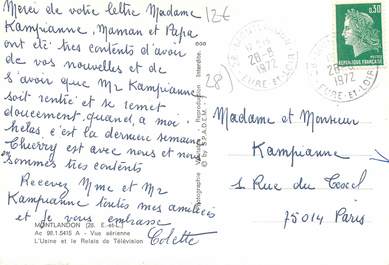 Merci de votre lettre Madame
Kampianne, Maman et Papa
ont été très contents d'avoir
de vos nouvelles et de
s'avoir que Mr Kampianne
soit rentré et se remet
doucement, quand, a moi
hélas c'est la dernière semaine
Thierry est avec nous et nous
en sommes très contents
Recevez Mme et Mr
Kampianne toutes mes amitiés
et je vous embrasse
Colette
MONTLANDON (28. E.-et-L.)
Ac 98.1.5415 A - Vue aérienne
L'Usine et le Relais de Télévision
12€
28)
Reproduction Interdite
© by S.P.A.D.E.M.
28-8
1972
EURE-ET-LOIR
28-8
1972
EURE-ET-LOIR
0,30
REPUBLIQUE FRANÇAISE
Madame et Monsieur
Kampianne
1 Rue du
75014 Paris